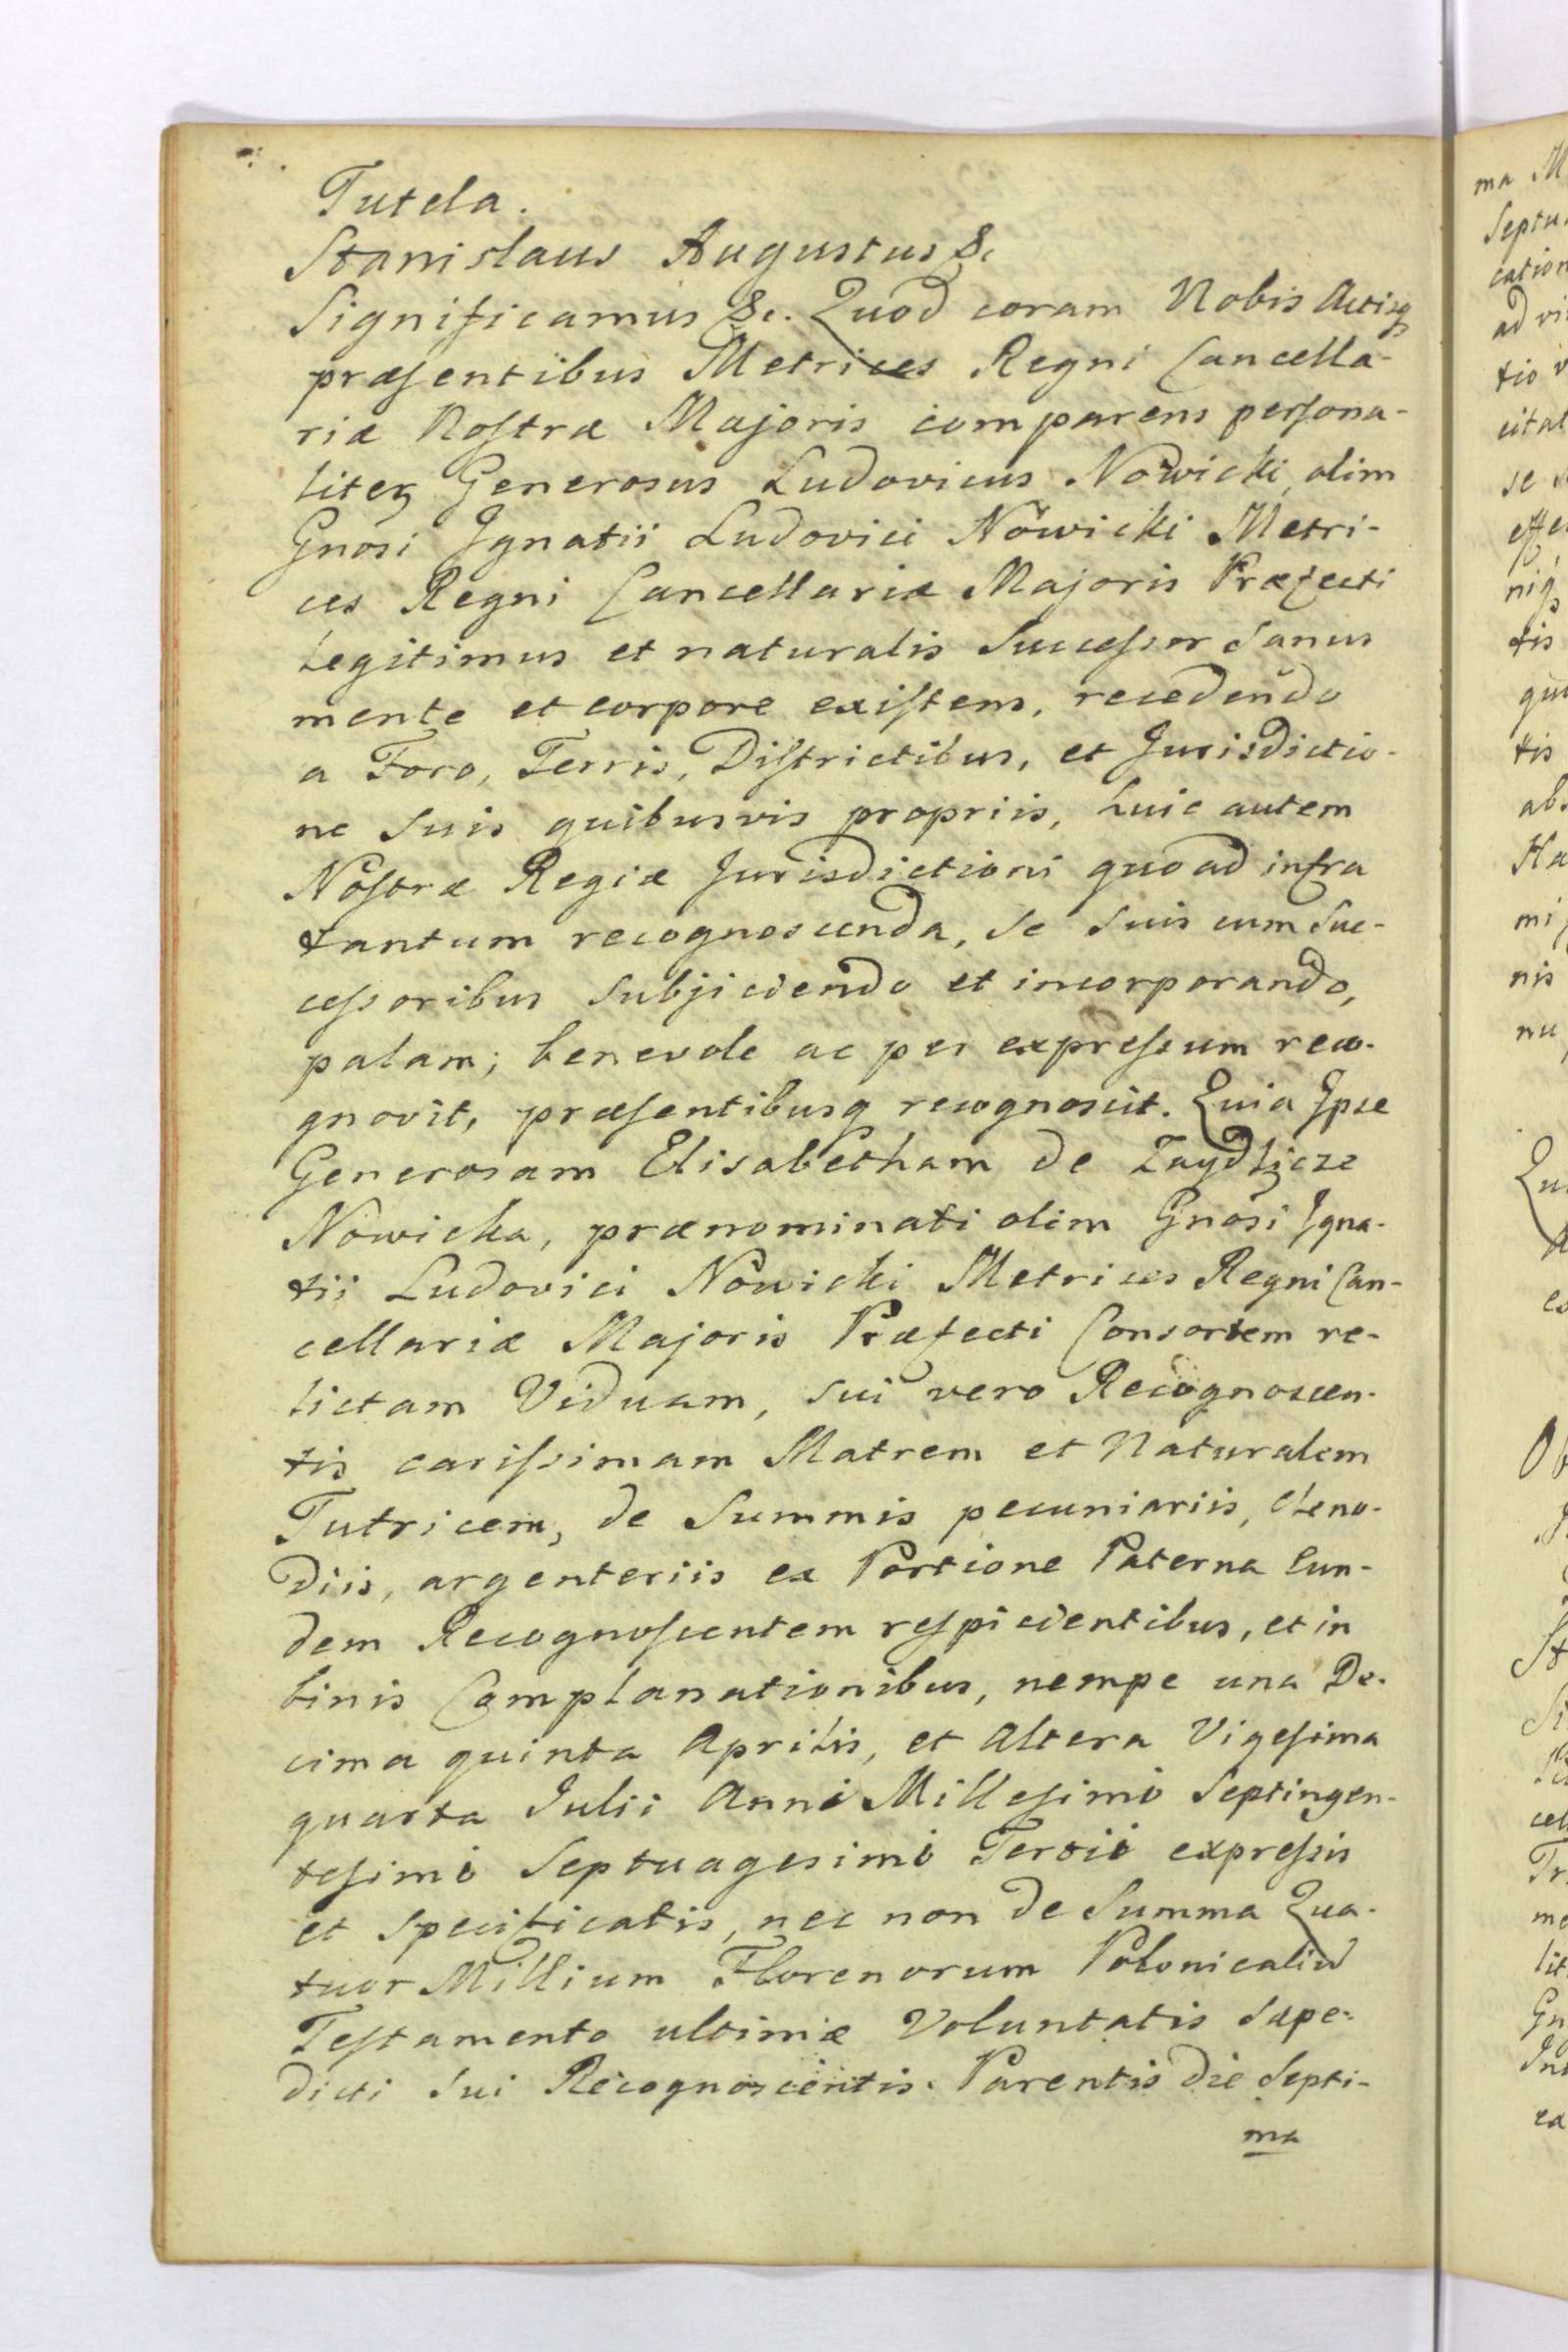 Tutela.
Stanislaus Augustus &c
Significamus &c. Quod coram Nobis Actisq
præsentibus Metrices Regni Cancella-
riæ Nostræ Majoris comparens persona-
liter Generosus Ludovicus Nowicki, olim
Gnosi Ignatii Ludovici Nowicki Metri-
ces Regni Cancellariæ Majoris Præfecti
Legitimus et naturalis Successor Sanus
mente et corpore existens, recedendo
a Foro, Terris, Districtibus, et Jurisdictio-
ne Suis quibusvis propriis, huic autem
Nostræ Regiæ Jurisdictioni quo ad infra
tantum recognoscenda, Se Suis cum Suc-
cessoribus Subjiciendo et incorporando,
palam; benevole ac per expressum reco-
gnovit, præsentibusq recognoscit. Quia Ipse
Generosam Elisabetham de
Nowicka, prænominati olim Gnosi Igna-
tii Ludovici Nowicki Metrices Regni Can-
cellariæ Majoris Præfecti Consortem re-
lictam Viduam, sui vero Recognoscen-
tis carissimam Matrem et Naturalem
Tutricem, de Summis pecuniariis, Cleno-
diis, argenteriis ex Portione Paterna Eun-
dem Recognoscentem respicientibus, et in
binis Complanationibus, nempe una De-
cima quinta Aprilis, et Altera Vigesima
quarta Julii Anni Millesimi Septingen-
tesimi Septuagesimi Tertii expressis
et specificatis, nec non de Summa Qua-
tuor Millium Florenorum Polonicaliu
Testamento ultimæ Voluntatis Sæpe-
dicti Sui Recognoscentis Parentis die Septi-
ma
ma M
Septu
cation
ad vi
tio
citat
se
effe
niq
tis
qu
tis
abs
Ha
mi
nis
nu
Qu